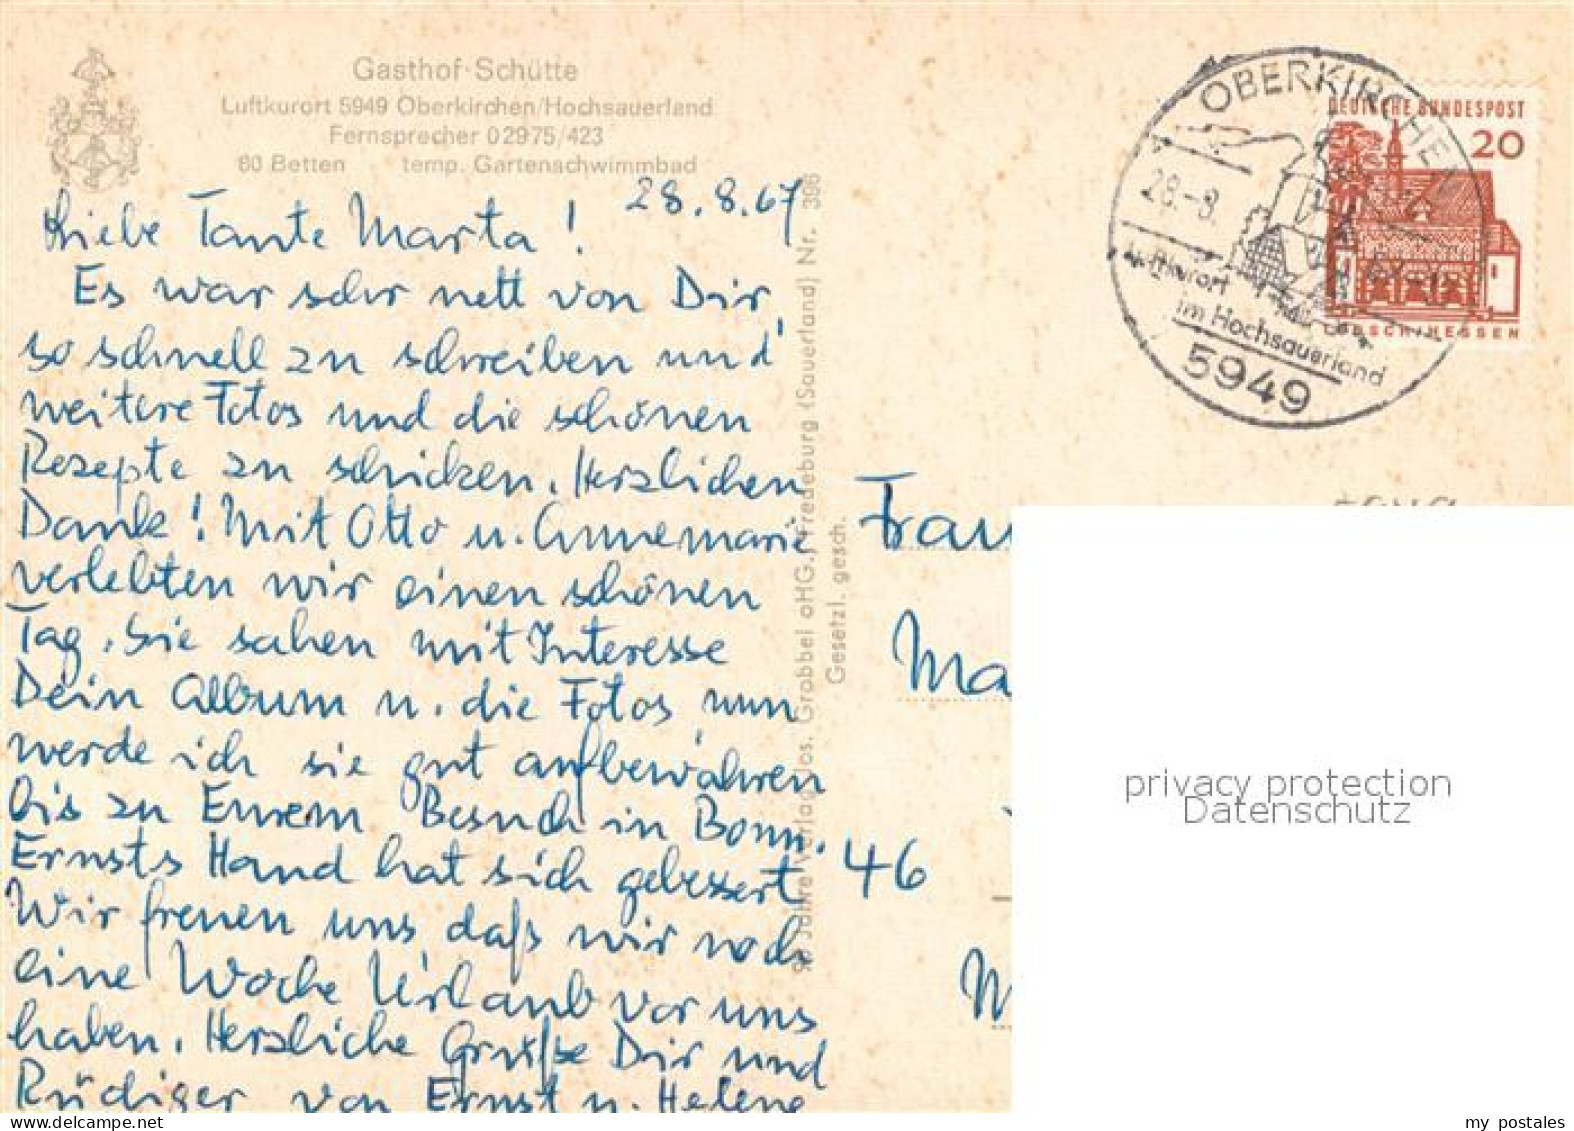 Gasthof-Schütte
Luftkurort 5949 Oberkirchen/Hochsauerland
Fernsprecher 02975/423
80 Betten temp. Gartenschwimmbad
28.8.67
Liebe Tante Marta!
Es war sehr nett von Dir,
so schnell zu schreiben und
weitere Fotos und die schönen
Rezepte zu schicken. Herzlichen
Dank! Mit Otto u. Annemarie
verlebten wir einen schönen
Tag. Sie sahen mit Interesse
Dein Album u. die Fotos nun
werde ich sie gut aufbewahren
bis zu Eurem Besuch in Bonn.
Ernsts Hand hat sich gebessert
Wir freuen uns, daß wir noch
eine Woche Urlaub vor uns
haben. Herzliche Grüße Dir und
Rüdiger von Ernst u. Helene
Jahre Verlag Jos. Grobbel oHG., Fredeburg (Sauerland) Nr. 396
Gesetzl. gesch.
OBERKIRCHEN
28.-8.
Luftkurort
im Hochsauerland
5949
DEUTSCHE BUNDESPOST
20
LORSCH/HESSEN
Frau
Ma
46
M
privacy protection
Datenschutz
my postales